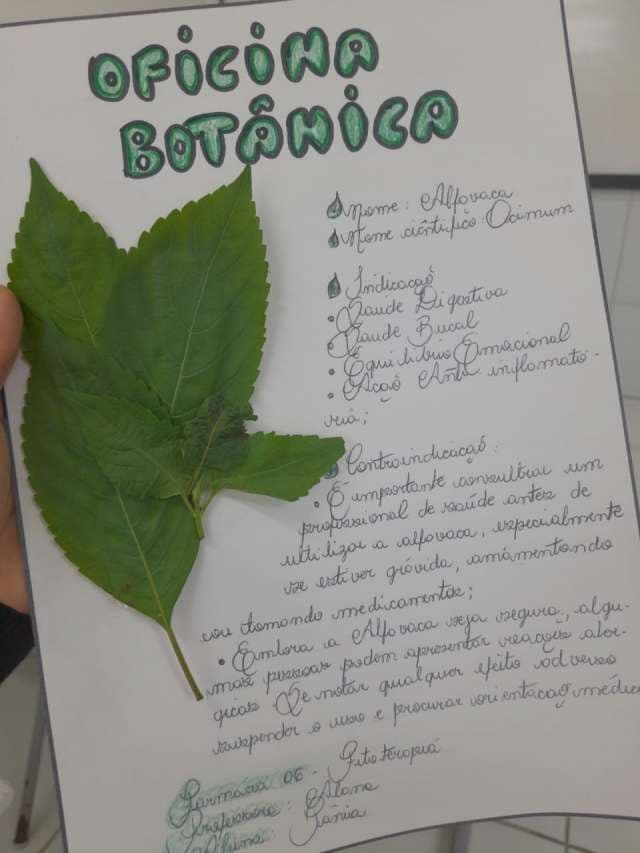 OFICINA
BOTÂNICA
Nome: Alfovaca
Nome ciêntifico: Ocimum
Indicação
• Saude Digestiva
• Saude Bucal
• Equilibrio Emocional
• Ação Anti-inflamato-
ria;
Contraindicação:
• É importante consultrar um
profissional de saúde antes de
ultilizar a alfovaca, especialmente
se estiver grávida, amamentando
ou tomando medicamentos;
• Embora a Alfovaca seja segura, algu-
mas pessoas podem apresentar reações aler-
gicas Se notar qualquer efeito adverso
suspender o uso e procurar orientação médica
Farmácia 06 - Fitoterapia
Professora: Alana
Aluna: Tânia